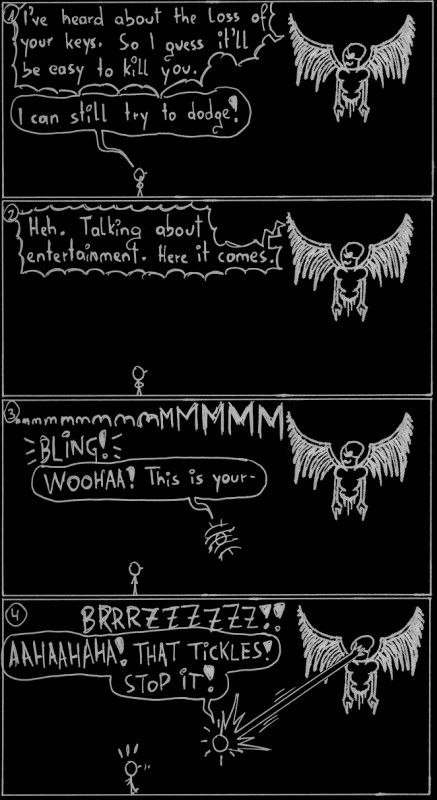 1
I've heard about the loss of
your keys. So I guess it'll
be easy to kill you.
I can still try to dodge!
2
Heh. Talking about
entertainment. Here it comes.
3
mmmmmmmmMMMMMM
BLING!
WOOHAA! This is your-
4
BRRRZZZZZZZ!!
AAHAAHAHA! THAT TICKLES!
STOP IT!